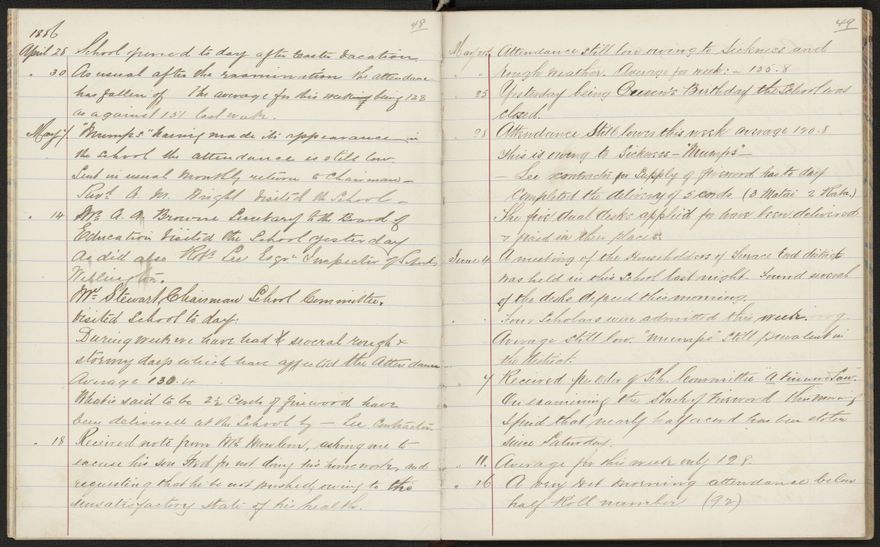 48
1886
April 28 School opened to day after Easter Vacation.
" 30 As usual after the examination the attendance
has fallen off The average for this week being 128
as against 151 last week.
May 7. "Mumps" having made its appearance in
the school the attendance is still low.
Sent in usual monthly return to Chairman —
Revd. A. M. Wright visited the School —
" 14 Mr. A. A. Browne Secretary to the Board of
Education visited the School yesterday
As did also Robt. Lee Esqr. Inspector of Schools
Wellington.
Mr. Stewart, Chairman School Committee,
visited School to day.
During week we have had several rough &
stormy days which have affected the attendance
Average 130.4
What is said to be 2½ Cords of firewood have
been delivered at the School by — Lee Contractor
" 18 Received note from Mr. Moulton, asking me to
excuse his son Fred for not doing his homework, and
requesting that he be not pushed owing to the
unsatisfactory state of his health.
49
May 21 Attendance still low owing to Sickness and
" " rough weather. Average for week: – 135.8
" 25 Yesterday being Queen's Birthday the School was
closed.
" 28 Attendance Still lower this week average 120.8
This is owing to Sickness – "Mumps" –
– Lee contractor for Supply of firewood has to day
completed the delivery of 5 cords. (3 Matai 2 )
The five dual desks applied for have been delivered
& fixed in their places.
June 4. A meeting of the Householders of District
was held in this School last night. Found several
of the desks defaced this morning.
" " Four Scholars were admitted this week.
Average still low. "Mumps" still prevalent in
the District.
" 7 Received per order of Sch. Committee "A Firewood Saw".
On examining the Stack of Firewood this morning
I find that nearly half a cord has been stolen
since Saturday.
" 11. Average for this week only 128.
" 16 A very wet morning attendance below
half Roll number (92)